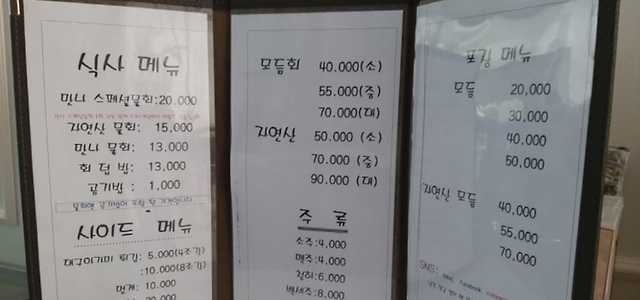 식사 메뉴
만나 스페셜물회:20.000
자연산 물회: 15,000
만나 물회: 13,000
회 덮 밥: 13,000
공기밥 : 1,000
사이드 메뉴
5.000(4조각)
:10.000(8조각)
멍게: 10.000
모듬회 40.000(소)
55.000(중)
70.000(대)
자연산 50.000 (소)
70.000 (중)
90.000 (대)
주 류
소주:4,000
맥주:4,000
청하:6,000
백세주:8,000
포장 메뉴
모듬 20,000
30,000
40,000
50,000
자연산 모듬 40,000
55,000
70,000
SNS: